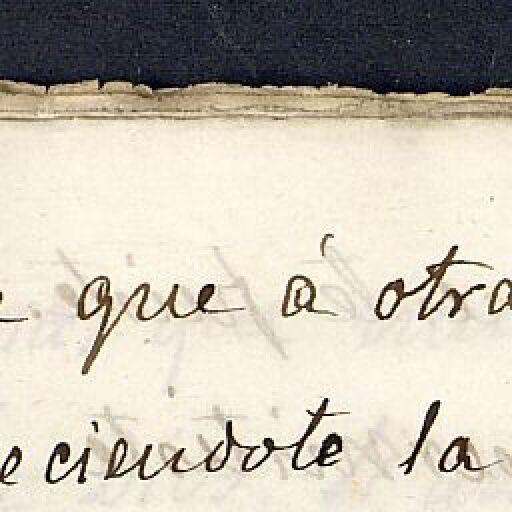 que á otra
eciendote la